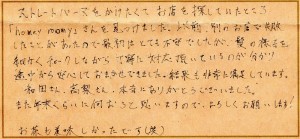 ストレートパーマをかけたくてお店を探していたところ
「honey momy」さんを見つけました。以前、別のお店で失敗
したことがあったので最初はとても不安でしたが、髪の様子を
細かくチェックしながら丁寧に対応頂いているのが分かり
途中から安心しておまかせできました。結果も非常に満足しています。
和田さん、高橋さん、本当にありがとうございました。
また半年くらいに伺おうと思いますので、よろしくお願いします!
お茶も美味しかったです(笑)